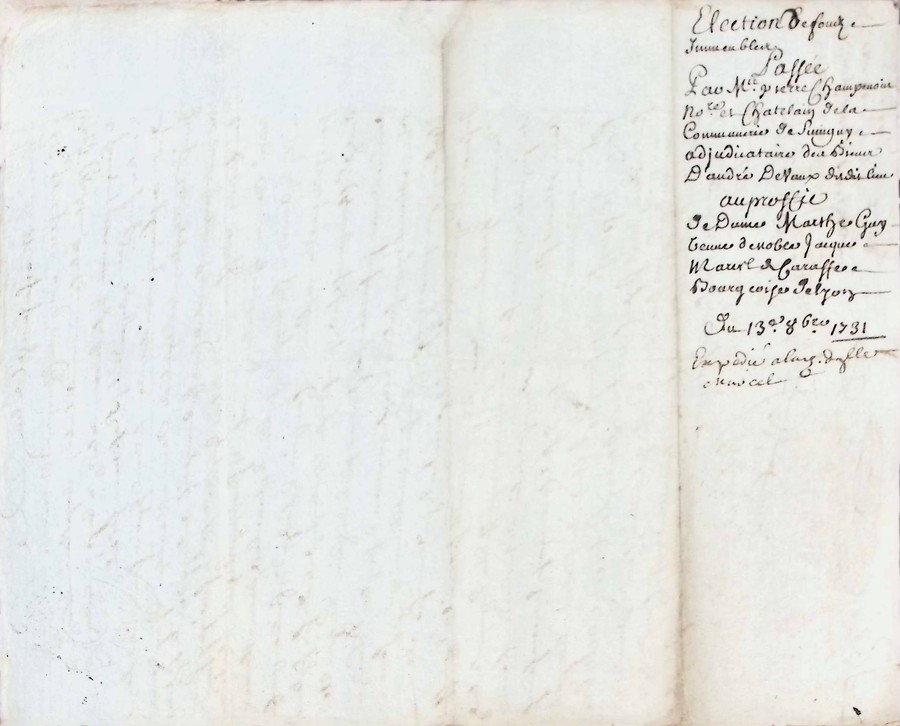 Election de fondz
Immeubles
Passée
Par Mre pierre Champenoix
Nore et Chatelain dela
Commanderie de
adjudicataire des Biens
D'andré Devaux dudit lieu
au proffit
de Dame Marthe Guy
veuve denoble Jacque
Bourgeoise de Lyon
Du 13e 8bre 1731
Expedié